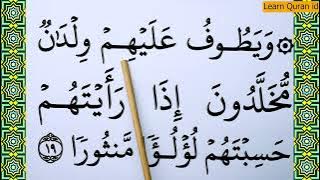 Learn Quran id
۞ وَيَطُوفُ عَلَيْهِمْ وِلْدَانٌ
مُّخَلَّدُونَ إِذَا رَأَيْتَهُمْ
حَسِبْتَهُمْ لُؤْلُؤًا مَّنثُورًا ١٩